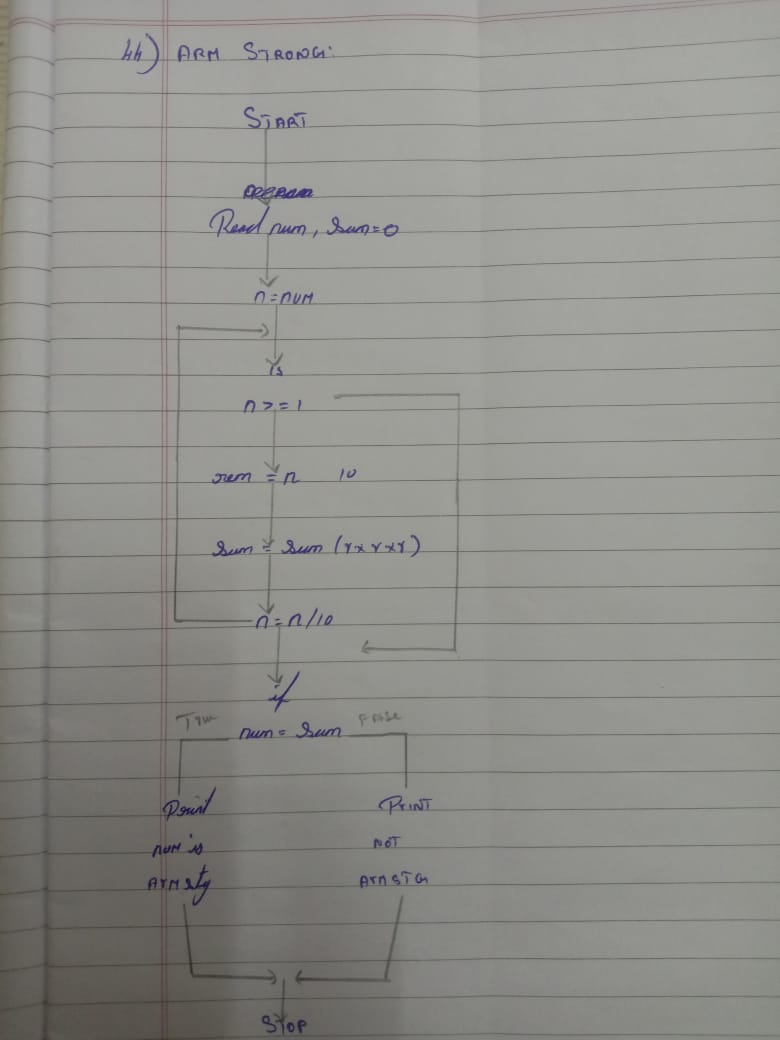 44) ARM STRONG:
START
Read num, Sum=0
n=num
Is
n>=1
rem = n 10
Sum = Sum (r×r×r)
n=n/10
if
True False
num= Sum
Print PrINT
num is NOT
ArMstg ArMSTG
STOP